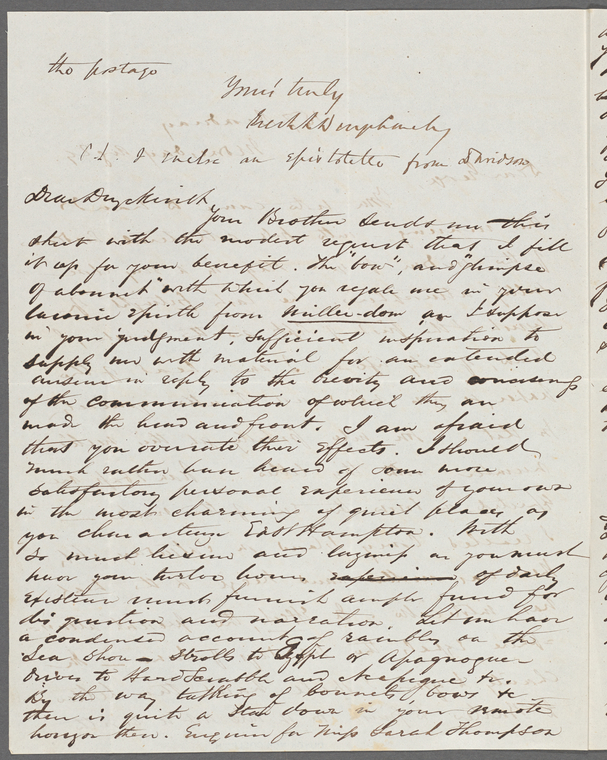 the postage
Yours truly
P.S. I enclose an epistolette from Davidson
Dear Duyckinck
Your Brother sends me this
sheet with the modest request that I fill
it up for your benefit. The "bow", and "glimpse
of a bonnet" with which you regale me in your
laconic epistle from Miller-dom, are I suppose
in your judgment, sufficient inspiration to
supply me with material for an extended
answer in reply to the brevity and conciseness
of the communication of which they are
made the head and front. I am afraid
that you overrate their effects. I should
much rather have heard of some more
satisfactory personal experience of your own
in the most charming of quiet places as
you characterize East Hampton. With
so much leisure and as you must
have your twelve hours of daily
existence must furnish ample fund for
disquisition and narration. Let me have
a condensed account of rambles on the
Sea Shore – Strolls to Egypt or Apaquogue
Drives to Hardscrabble and Neapeague &c.
By the way talking of bonnets, bows &c
there is quite a Star down in your remote
horizon there. Enquire for Miss Sarah Thompson